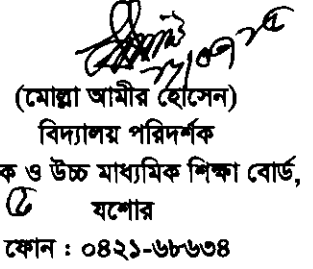 (মোল্লা আমীর হোসেন)
বিদ্যালয় পরিদর্শক
ক ও উচ্চ মাধ্যমিক শিক্ষা বোর্ড,
যশোর
ফোন : ০৪২১-৬৮৬৩৪